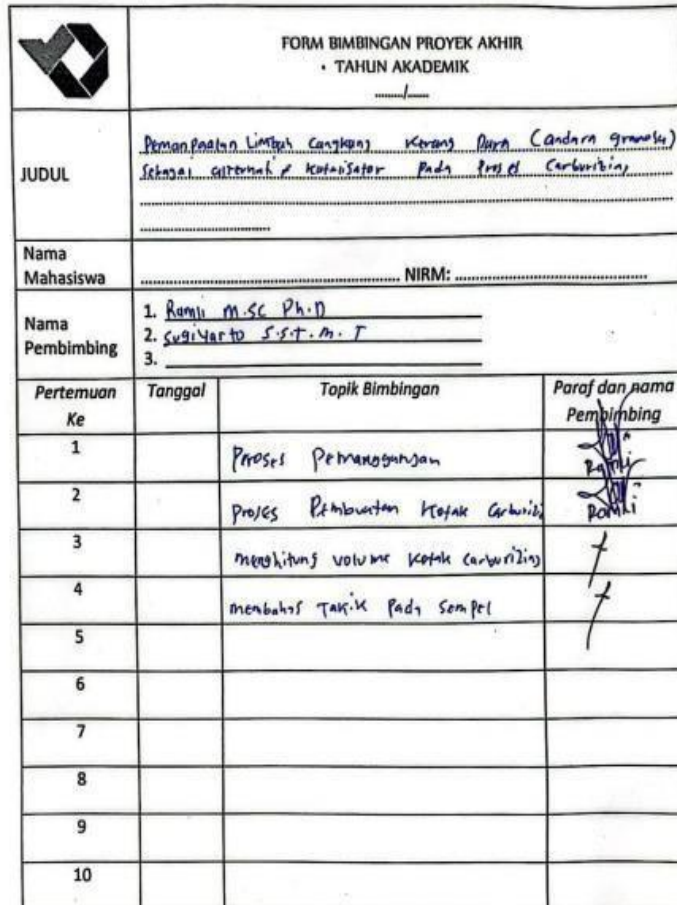 FORM BIMBINGAN PROYEK AKHIR
TAHUN AKADEMIK
......../........
JUDUL
Pemanpaatan Limbah Cangkang Kerang Dara (Andara granosa)
Sebagai alternatif Katalisator Pada Proses Carburizing
Nama Mahasiswa
NIRM:
Nama Pembimbing
1. Ramli M.SC Ph.D
2. Sugiyarto S.S.T.M.T
3.
Pertemuan Ke Tanggal Topik Bimbingan Paraf dan nama Pembimbing
1 Proses Pemanggangan Ramli
2 Proses Pembuatan Kotak Carburizi Ramli
3 menghitung volume kotak carburizing
4 membahas Takik Pada Sempel
5
6
7
8
9
10